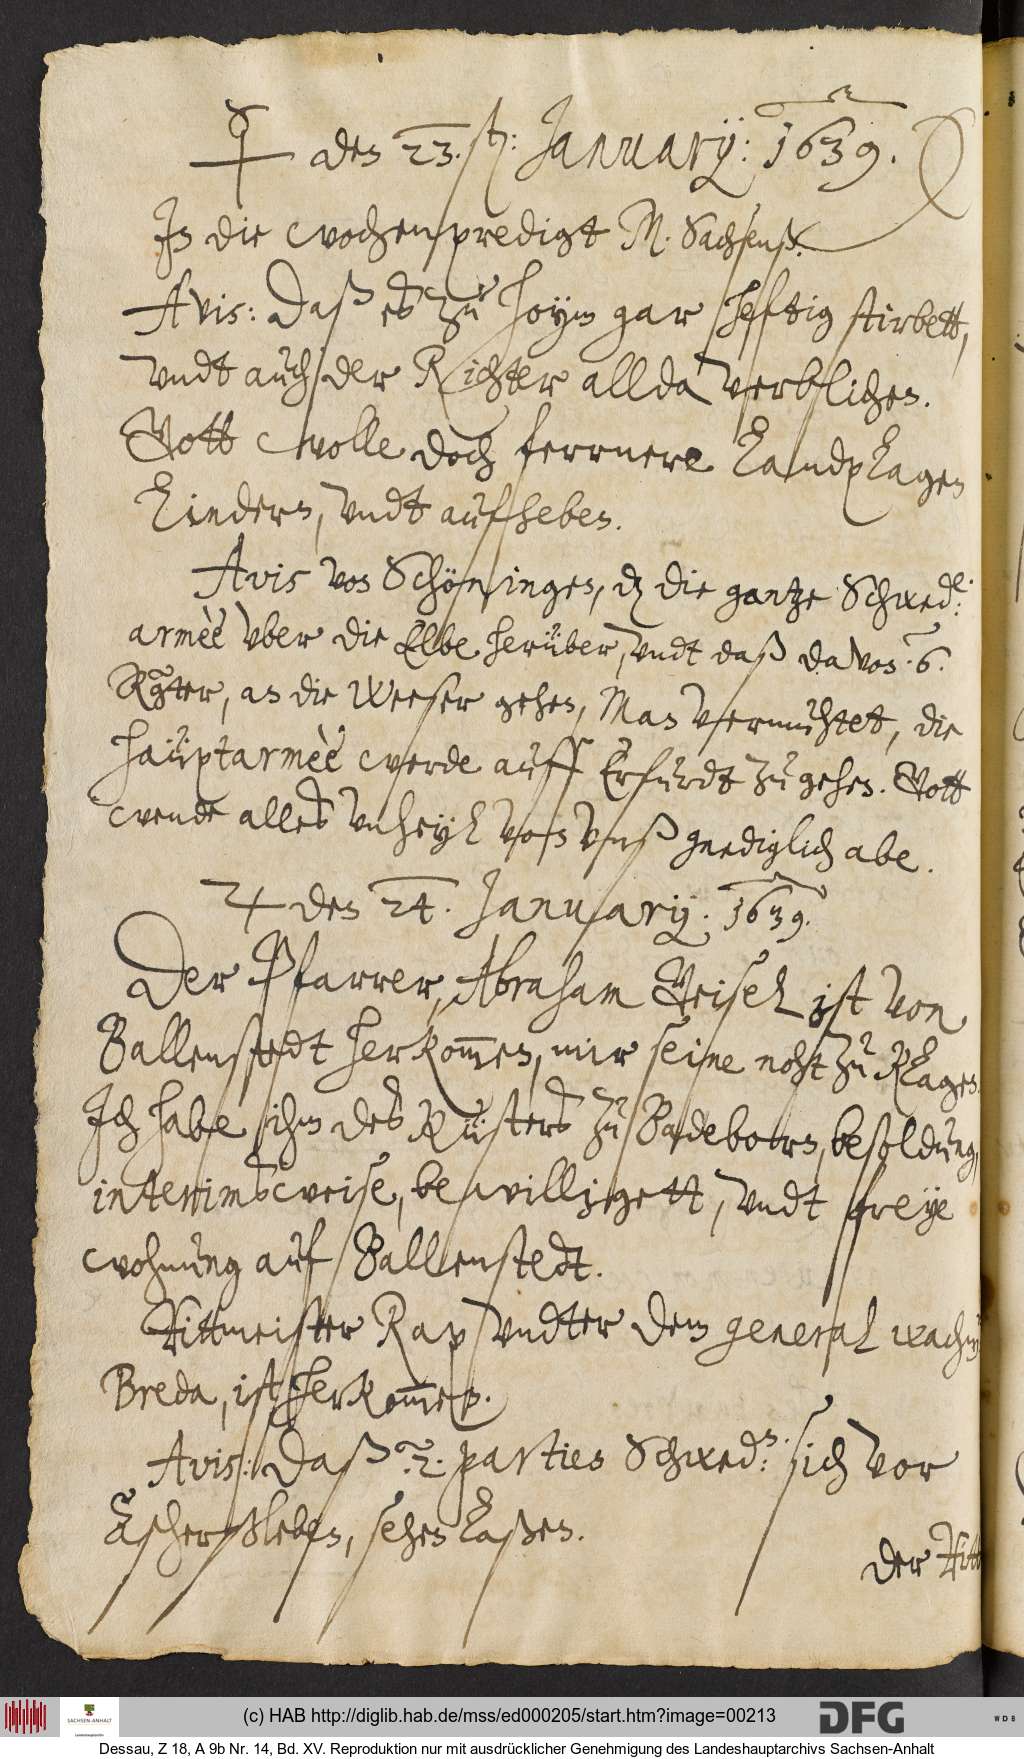 ☿ den 23.sten: Januarij: 1639.
In die wochenpredigt M. Sachsenß.
Avis: daß es zu Hoym gar heftig stirbett,
vndt auch der Richter allda verblichen.
Gott wolle doch fernnere Landplagen
Lindern, vndt aufheben.
Avis von Schöningen, dz die gantze Schwede:
armèè vber die Elbe herüber, vndt daß davon .6.
Rgter, an die Weeser gehen, Man vermuhtet, die
haüptarmèè werde auff Erfurdt zu gehen. Gott
wende alles vnheyl von vnß gnediglich abe.
♃ den 24. Januarij: 1639.
Der Pfarrer, Abraham Geisel ist von
Ballenstedt herkom̅en, mir seine noht zu klagen.
Ich habe ihm des Küsters zu Badeborn, besoldung,
interimsweise, bewilligett, vndt freye
wohnung auf Ballenstedt.
Rittmeister Rap vndter dem general wachm
Breda, ist herkom̅en.
Avis: daß .2. partien Schweden: sich vor
Aschersleben, sehen laßen.
der Ritt
(c) HAB http://diglib.hab.de/mss/ed000205/start.htm?image=00213
SACHSEN-ANHALT
DFG
WDB
Dessau, Z 18, A 9b Nr. 14, Bd. XV. Reproduktion nur mit ausdrücklicher Genehmigung des Landeshauptarchivs Sachsen-Anhalt